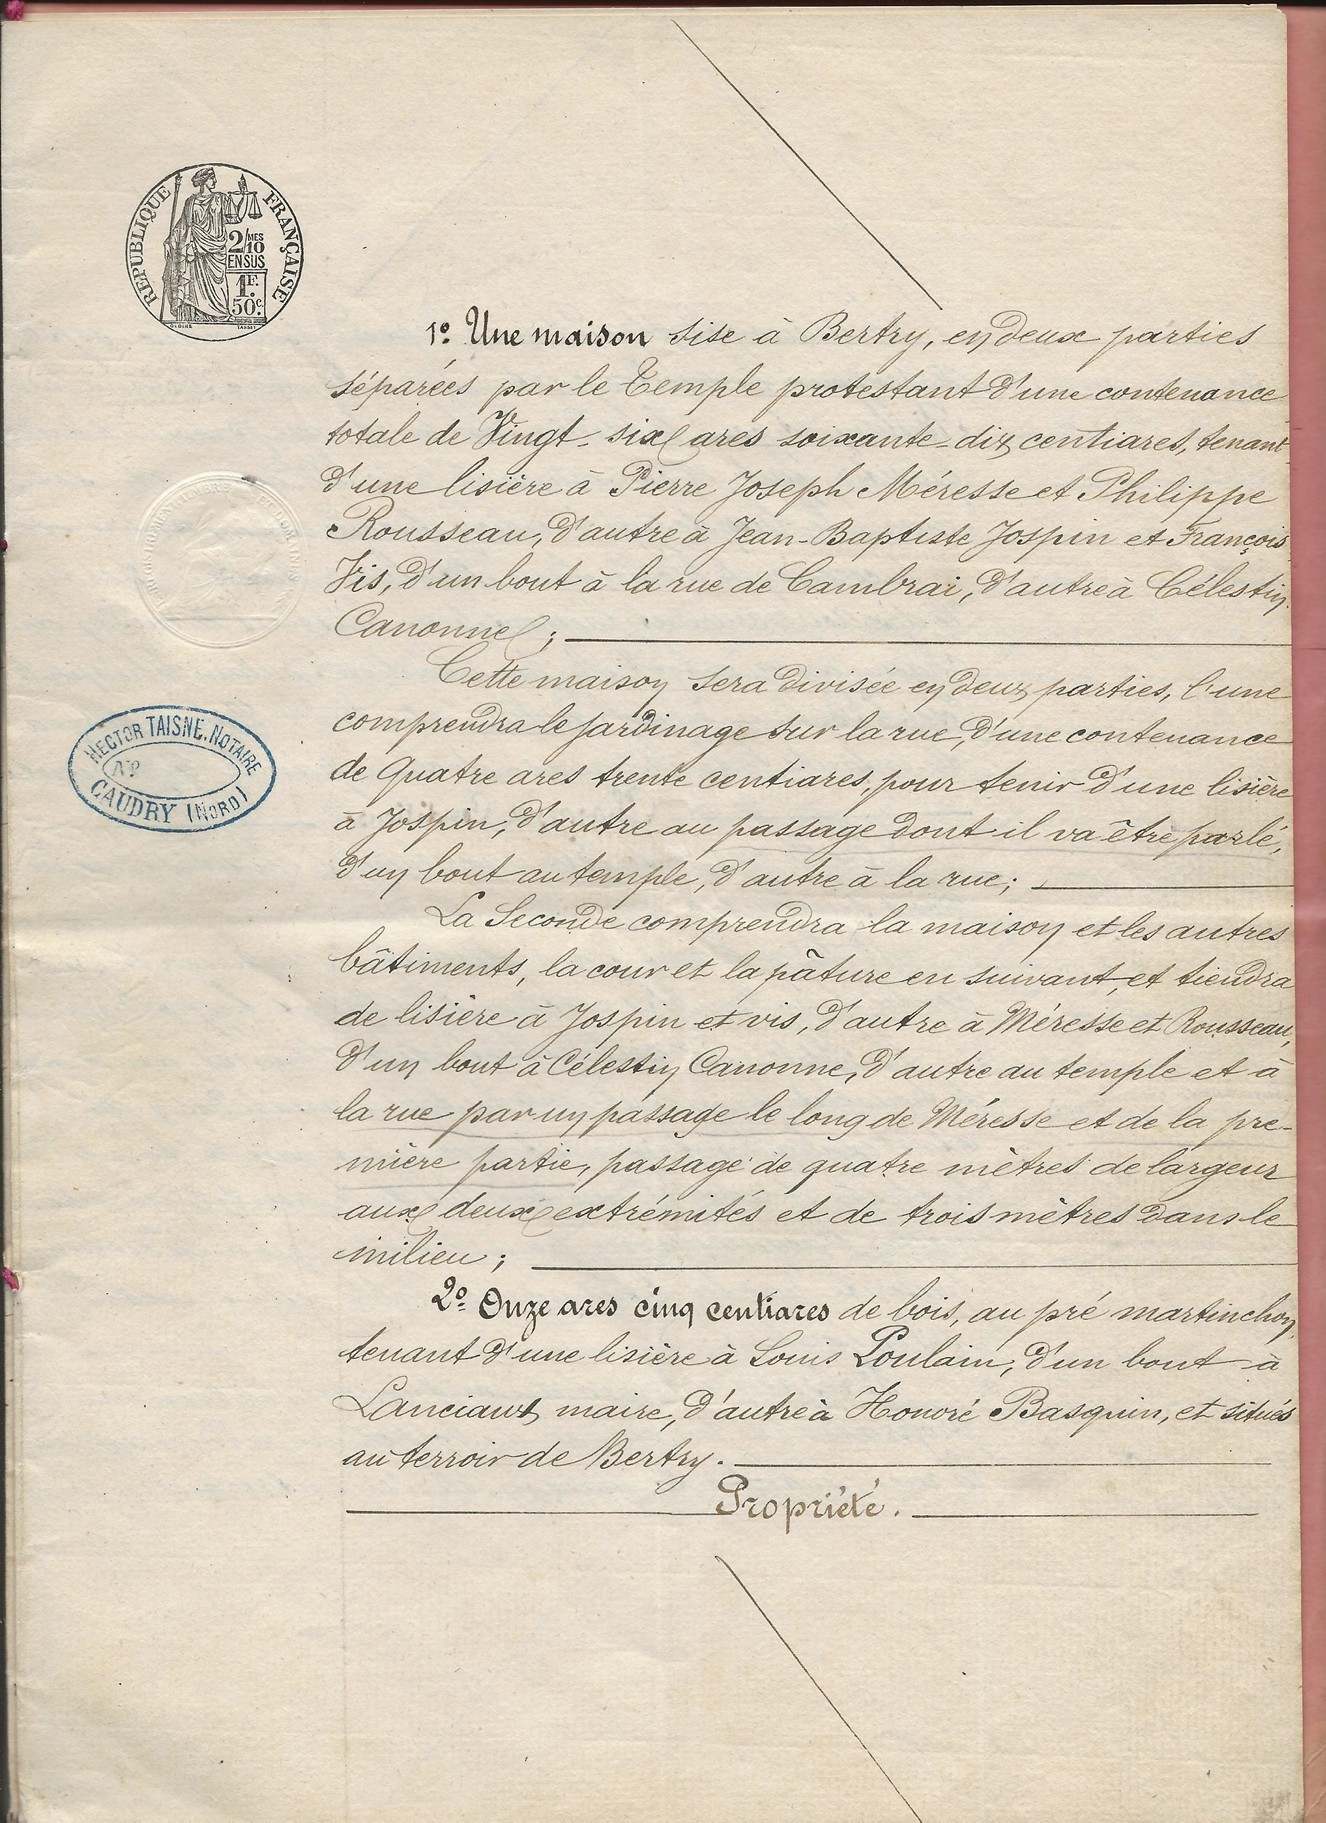 RÉPUBLIQUE FRANÇAISE
2/10 MES
EN SUS
1F.
50c.
HECTOR TAISNE. NOTAIRE
CAUDRY (NORD)
1º. Une maison sise à Bertry, en deux parties
séparées par le Temple protestant d'une contenance
totale de Vingt-six ares soixante-dix centiares, tenant
d'une lisière à Pierre Joseph Méresse et Philippe
Rousseau, d'autre à Jean-Baptiste Jospin et François
Vis, d'un bout à la rue de Cambrai, d'autre à Célestin
Canonne ;
Cette maison sera divisée en deux parties, l'une
comprendra le jardinage sur la rue, d'une contenance
de quatre ares trente centiares, pour tenir d'une lisière
à Jospin, d'autre au passage dont il va être parlé,
d'un bout au temple, d'autre à la rue ;
La Seconde comprendra la maison et les autres
bâtiments, la cour et la pâture en suivant, et tiendra
de lisière à Jospin et vis, d'autre à Méresse et Rousseau,
d'un bout à Célestin Canonne, d'autre au temple et à
la rue par un passage le long de Méresse et de la pre-
mière partie, passage de quatre mètres de largeur
aux deux extrémités et de trois mètres dans le
milieu ;
2º. Onze ares cinq centiares de bois, au pré martinchon,
tenant d'une lisière à Louis Poulain, d'un bout à
Lanciaux maire, d'autre à Honoré Basquin, et situés
au terroir de Bertry.
Propriété.